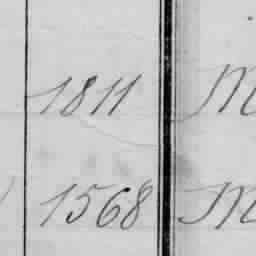 1811 M
1568 M